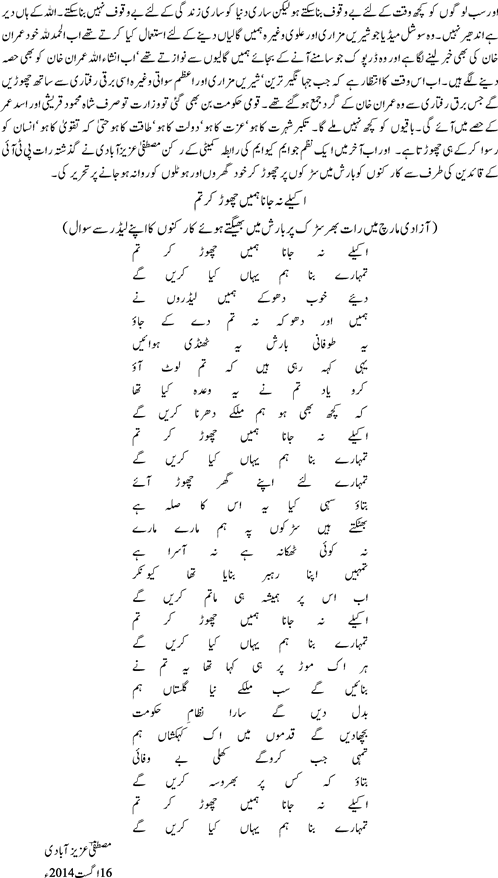 اور سب لوگوں کو کچھ وقت کے لئے بے وقوف بنا سکتے ہو لیکن ساری دنیا کو ساری زندگی کے لئے بے وقوف نہیں بنا سکتے۔ اللہ کے ہاں دیر
ہے اندھیر نہیں۔ وہ سوشل میڈیا جو شیریں مزاری اور علوی وغیرہ ہمیں گالیاں دینے کے لئے استعمال کیا کرتے تھے اب الحمدللہ خود عمران
خان کی بھی خبر لینے لگا ہے اور وہ ڈرپوک جو سامنے آنے کے بجائے ہمیں گالیوں سے نوازتے تھے‘ اب انشاءاللہ عمران خان کو بھی حصہ
دینے لگے ہیں۔ اب اس وقت کا انتظار ہے کہ جب جہانگیر ترین‘ شیریں مزاری اور اعظم سواتی وغیرہ اسی برق رفتاری سے ساتھ چھوڑیں
گے جس برق رفتاری سے وہ عمران خان کے گرد جمع ہو گئے تھے۔ قومی حکومت بن بھی گئی تو وزارت تو صرف شاہ محمود قریشی اور اسد عمر
کے حصے میں آئے گی۔ باقیوں کو کچھ نہیں ملے گا۔ تکبر شہرت کا ہو‘ عزت کا ہو‘ دولت کا ہو‘ طاقت کا ہو حتیٰ کہ تقویٰ کا ہو‘ انسان کو
رسوا کر کے ہی چھوڑتا ہے۔ اور اب آخر میں ایک نظم جو ایم کیو ایم کی رابطہ کمیٹی کے رکن مصطفیٰ عزیز آبادی نے گذشتہ رات پی ٹی آئی
کے قائدین کی طرف سے کارکنوں کو بارش میں سڑکوں پر چھوڑ کر خود گھروں اور ہوٹلوں کو روانہ ہو جانے پر تحریر کی۔
اکیلے نہ جانا ہمیں چھوڑ کر تم
(آزادی مارچ میں رات بھر سڑک پر بارش میں بھیگتے ہوئے کارکنوں کا اپنے لیڈر سے سوال)
اکیلے نہ جانا ہمیں چھوڑ کر تم
تمہارے بنا ہم یہاں کیا کریں گے
دئیے خوب دھوکے ہمیں لیڈروں نے
ہمیں اور دھوکہ نہ تم دے کے جاؤ
یہ طوفانی بارش یہ ٹھنڈی ہوائیں
یہی کہہ رہی ہیں کہ تم لوٹ آؤ
کرو یاد تم نے یہ وعدہ کیا تھا
کہ کچھ بھی ہو ہم ملکے دھرنا کریں گے
اکیلے نہ جانا ہمیں چھوڑ کر تم
تمہارے بنا ہم یہاں کیا کریں گے
تمہارے لئے اپنے گھر چھوڑ آئے
بتاؤ سہی کیا یہ اس کا صلہ ہے
بھٹکتے ہیں سڑکوں پہ ہم مارے مارے
نہ کوئی ٹھکانہ ہے نہ آسرا ہے
تمہیں اپنا رہبر بنایا تھا کیونکر
اب اس پر ہمیشہ ہی ماتم کریں گے
اکیلے نہ جانا ہمیں چھوڑ کر تم
تمہارے بنا ہم یہاں کیا کریں گے
ہر اک موڑ پر ہی کہا تھا یہ تم نے
بنائیں گے سب ملکے نیا گلستاں ہم
بدل دیں گے سارا نظامِ حکومت
بچھادیں گے قدموں میں اک کہکشاں ہم
تمہی جب کروگے کھلی بے وفائی
بتاؤ کہ کس پر بھروسہ کریں گے
اکیلے نہ جانا ہمیں چھوڑ کر تم
تمہارے بنا ہم یہاں کیا کریں گے
مصطفیٰ عزیز آبادی
16 اگست 2014ء